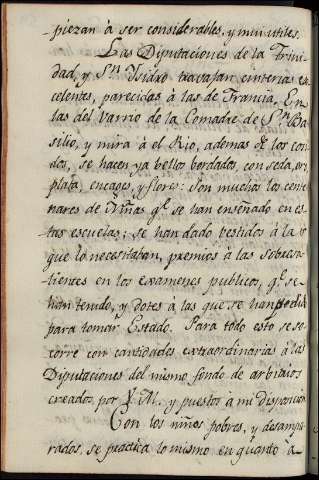 piezan à ser considerables, y mui utiles.
Las Diputaciones de la Trini-
dad, y Sn. Isidro travajan cinterias ex-
celentes, parecidas à las de Francia. En
las del Varrio de la Comadre de Sn. Ba-
silio, y mira à el Rio, ademas de los cor-
dos, se hacen ya bellos bordados, con seda, oro
plata, encages, y flores: Son muchos los cente-
nares de Niñas qe. se han enseñado en es-
tas escuelas; se han dado vestidos à las
que lo necesitaban, premios à las sobresa-
lientes en los examenes publicos, qe. se
han tenido, y dotes à las que se han
para tomar Estado. Para todo esto se so-
corre con cantidades extraordinarias à las
Diputaciones del mismo fondo de arbitrios
creados por V. M. y puestos à mi disposicion
Con los niños pobres, y desampa-
rados, se practica lo mismo en quanto à-